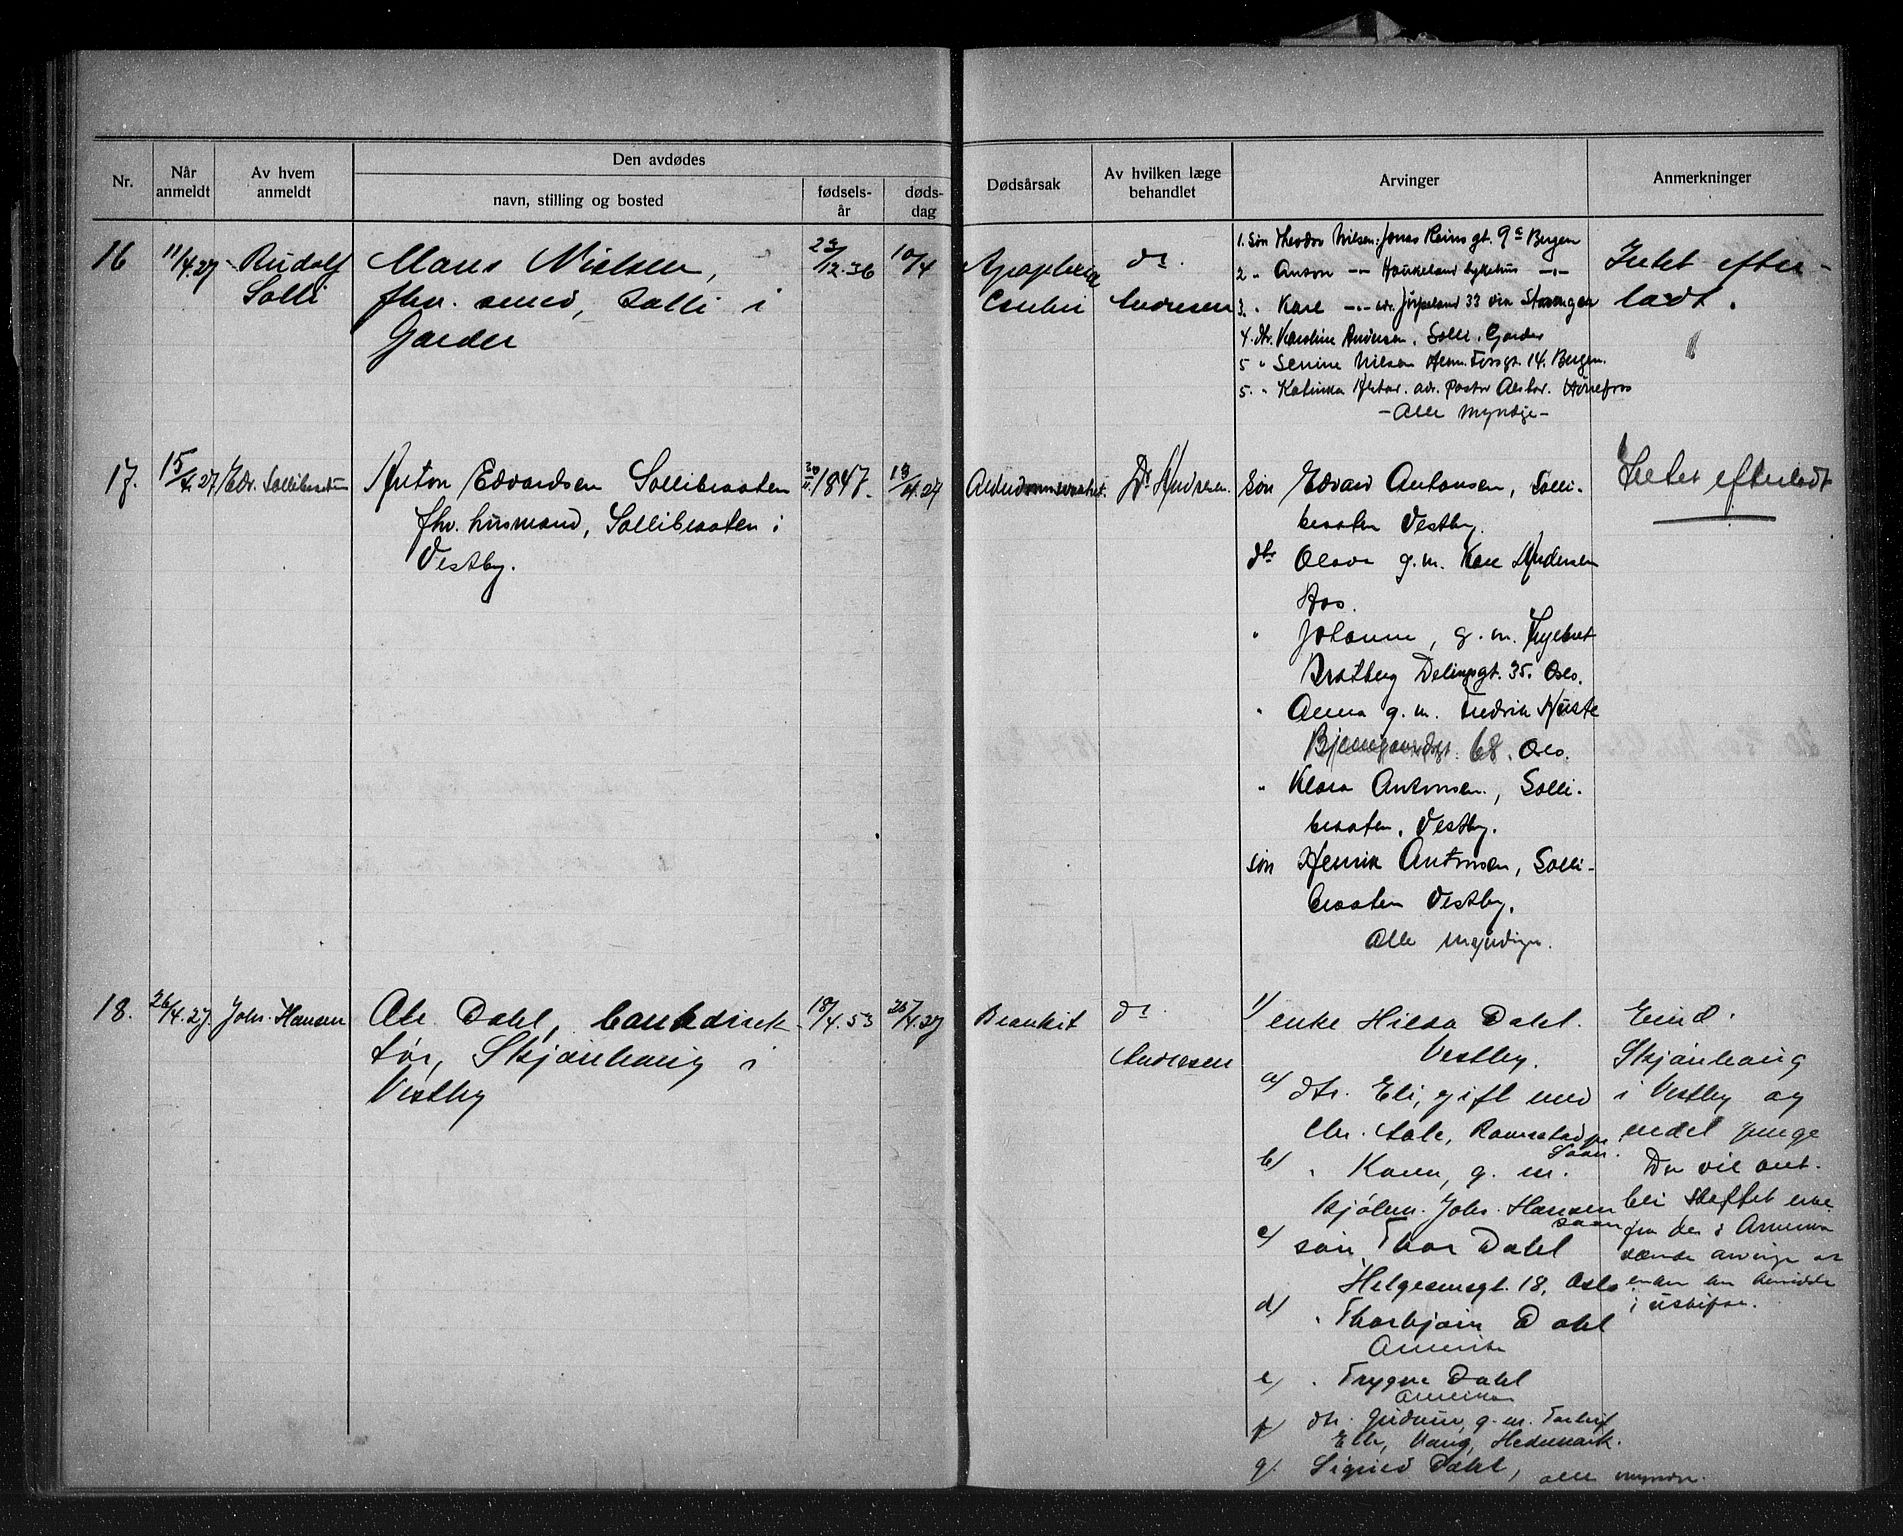 Nr.
Når anmeldt
Av hvem anmeldt
Den avdødes
navn, stilling og bosted
fødselsår
dødsdag
Dødsårsak
Av hvilken læge behandlet
Arvinger
Anmerkninger
16
11/4.27
Rudolf
Solli
Nielsen,
fhv. smed, Solli i
Garder
23/12.36
10/4
dr.
Andresen
1. Søn Theodor Nilsen. Jonas Reins gt. 9c Bergen
2 " Anton -"- Haukeland Sykehus -"-
3. " Karl -"- adr. Jørpeland 33 via Stavanger
4. dtr. Karoline Andersen. Solli. Garder
5 " Serine Nilsen Gt. 14. Bergen.
5. " Katinka adr. pastor Hønefos
- Alle myndige -
Intet efter-
ladt.
17.
15/4.27
Edv. Sollibraaten
Anton Edvardsen Sollibraaten
fhv. husmand, Sollibraaten i
Vestby.
1847.
13/4.27
Alderdomssvakhet
Dr Andresen.
Søn Edvard Antonsen, Solli-
braaten Vestby.
dtr Olava g.m. Karl Andersen
Aas.
" Johanne, g.m.
Bratberg Delingsgt. 35. Oslo.
" Anna g.m. Fredrik
68. Oslo.
" Klara Antonsen, Solli-
braaten, Vestby.
søn Henrik Antonsen, Solli-
braaten Vestby.
Alle myndige.
Intet efterladt
18.
26/4.27.
Johs. Hansen
Dahl, bankdirek
tør, Skjønhaug i
Vestby
18/4.53
25/4.27
dr
Andresen
1) enke Hilda Dahl.
Vestby.
a) dtr. Eli, gift med
Chr. Ramstad pr
Soon.
b) " g.m.
kjøbm. Johs. Hansen
Soon
c) søn, Thor Dahl
Helgesensgt. 18, Oslo
d) " Thorbjørn Dahl
Amerika
e) " Trygve Dahl
Amerika
f) dtr. Gudrun, g.m.
Vang, Hedemark.
g. Sigrid Dahl, alle myndige.
Eiend.
Skjønhaug
i Vestby og
endel penge
Der vil ant.
bli skiftet
fra de i Amerika
arvinge
enken
i uskifte.